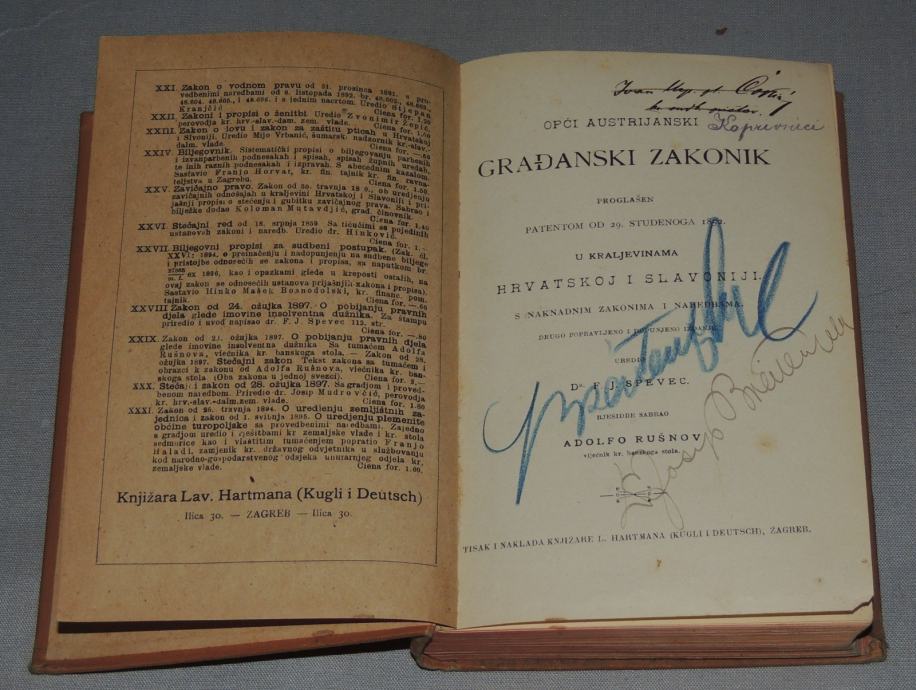 XXI. Zakon o vodnom pravu od 31. prosinca 1891. s pro-
vedbenimi naredbami od 8. listopada 1892. br. 48.602., 48.603.,
48.604. 48.605., i 48.606. i s jednim nacrtom. Uredio Stjepan
Kranjčić Ciena for. 1.20
XXII. Zakoni i propisi o ženitbi. Uredio Zvonimir Žepić,
perovodja kr. hrv.-slav.-dam. zem. vlade. Ciena for. 1.50
XXIII. Zakon o lovu i zakon za zaštitu pticah u Hrvatskoj
i Slvoniji. Uredio Mijo Vrbanić, šumarski nadzornik kr.-slav.-
dalm. vlade. Ciena for. —.60
XXIV. Biljegovnik. Sistematički propisi o biljegovanju parbenih
i izvanparbenih podnesakah i spisah, spisah župnih uredah,
te inih raznih podnesakah i izpravah. S abecednim kazalom,
Sastavio Franjo Horvat, kr. fin. tajnik kr. fin. ravna-
teljstva u Zagrebu. Ciena for. 1.50.
XXV. Zavičajno pravo. Zakon od 30. travnja 18 0., ob uredjenju
zavičajnih odnošajah u kraljevini Hrvatskoj i Slavoniji i pri-
jašnji propisi o stečenju i gubitku zavičajnog prava. Sabrao i
bilježke dodao Koloman Mutavdjić, grad. činovnik.
Ciena for. 1.40
XXVI. Stečajni red od 18. srpnja 1859. Sa tičućimi se pojedinih
ustanovah zakoni i naredb. Uredio dr. Hinković.
Ciena for. 1.—
XXVII. Biljegovni propisi za sudbeni postupak. (Zak. čl.
XXVI: 1894. o preinačenju i nadopunjenju na sudbene biljege
i pristojbe odnosećih se zakona i propisa, sa naputkom br.
ex 1896, kao i opazkami glede u kreposti ostalih, na
ovaj zakon se odnosećih ustanova prijašnjih zakona i propisa).
Sastavio Hinko Mašek Bosnodolski, kr. financ. pom.
tajnik. Ciena for. —.60
XXVIII Zakon od 24. ožujka 1897. O pobijanju pravnih
djela glede imovine insolventna dužnika. Za štampu
priredio i uvod napisao dr. F. J. Spevec 112. str.
Ciena for. —.80
XXIX. Zakon od 24. ožujka 1897. O pobijanju pravnih djela,
glede imovine insolventna dužnika Sa tumačem Adolfa
Rušnova, viećnika kr. banskoga stola. — Zakon od 28.
ožujka 1897. Stečajni zakon Tekst zakona sa tumačem i
obrazci k zakonu od Adolfa Rušnova, viećnika kr. ban-
skoga stola (Oba zakona u jednoj svezci). Ciena for. 2.—
XXX. Stečajni zakon od 28. ožujka 1897. Sa gradjom i proved-
benom naredbom. Priredio dr. Josip Mudrovčić, perovodja
kr. hrv.-slav.dalm.zem. vlade. Ciena for. 1.80
XXXI. Zakon od 25. travnja 1894. O uredjenju zemljištnih za-
jednica i zakon od 1. svibnja 1895. O uredjenju plemenite
občine turopoljske sa provedbenimi naredbami. Zajedno
s gradjom uredio i rješitbami kr zemaljske vlade i kr. stola
sedmorice kao i vlastitim tumačenjem popratio Franjo
Haladi, zamjenik kr. državnog odvjetnika u službovanju
kod narodno-gospodarstvenog odsjeka unutarnjeg odjela kr.
zemaljske vlade. Ciena for. 1.60.
Knjižara Lav. Hartmana (Kugli i Deutsch)
Ilica 30. — ZAGREB — Ilica 30.
Ivan
OPĆI AUSTRIJANSKI
Koprivnici
GRAĐANSKI ZAKONIK
PROGLAŠEN
PATENTOM OD 29. STUDENOGA 1852.
U KRALJEVINAMA
HRVATSKOJ I SLAVONIJI.
S NAKNADNIM ZAKONIMA I NAREDBAMA.
DRUGO POPRAVLJENO I POPUNJENO IZDANJE.
UREDIO
DR. F. J. SPEVEC.
RJESIDBE SABRAO
ADOLFO RUŠNOV
vijećnik kr. banskoga stola.
Josip
TISAK I NAKLADA KNJIŽARE L. HARTMANA (KUGLI I DEUTSCH), ZAGREB.